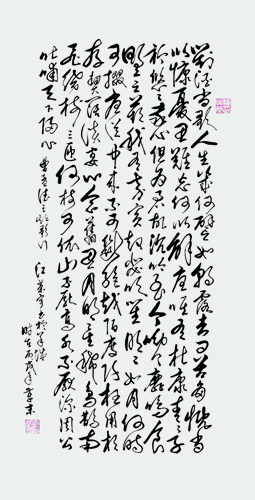 對酒當歌人生幾何譬如朝露去日苦多慨當
以慷憂思難忘何以解憂唯有杜康青青子
衿悠悠我心但為君故沉吟至今呦呦鹿鳴食
野之苹我有嘉賓鼓瑟吹笙明明如月何時
可掇憂從中來不可斷絕越陌度阡枉用相
存契闊談宴心念舊恩月明星稀烏鵲南
飛繞樹三匝何枝可依山不厭高水不厭深周公
吐哺天下歸心 曹孟德之短歌行
時在丙戌年